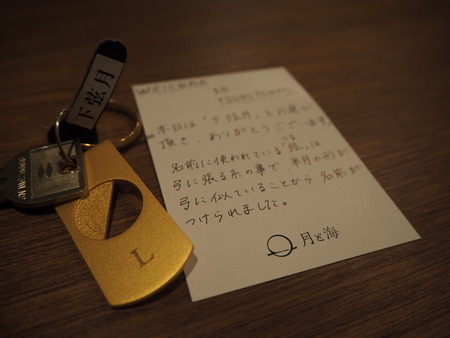 下弦月
Welcome
本日は「下弦月」をお選び
頂き、ありがとうございます
名前に使われている"弦"は
つる
弓に張る糸の事で 半月の形が
弓に似ていることから 名前が
つけられました。
月と海
L